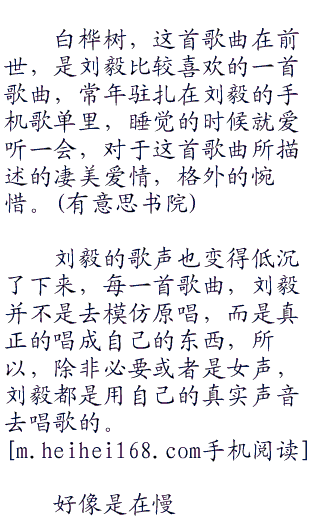 白桦树，这首歌曲在前
世，是刘毅比较喜欢的一首
歌曲，常年驻扎在刘毅的手
机歌单里，睡觉的时候就爱
听一会，对于这首歌曲所描
述的凄美爱情，格外的惋
惜。(有意思书院)
刘毅的歌声也变得低沉
了下来，每一首歌曲，刘毅
并不是去模仿原唱，而是真
正的唱成自己的东西，所
以，除非必要或者是女声，
刘毅都是用自己的真实声音
去唱歌的。
[m.heihei168.com手机阅读]
好像是在慢